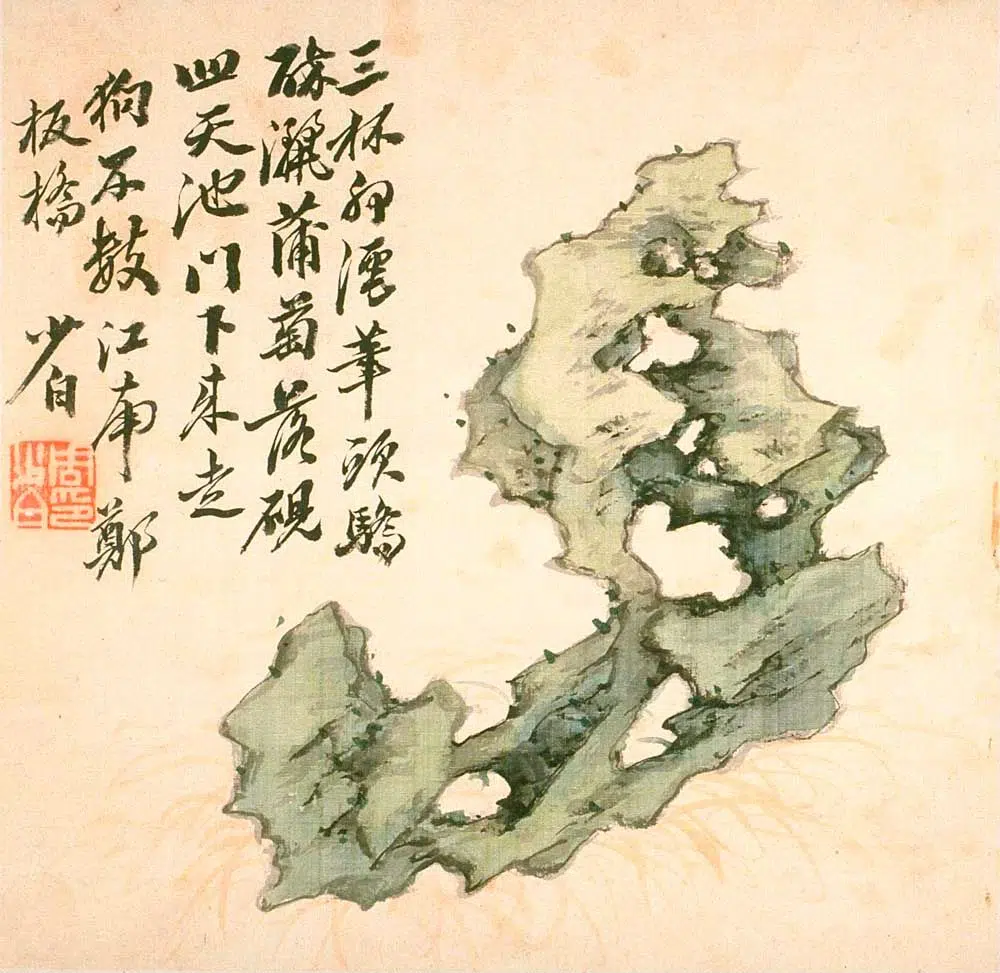 三杯卯筆頭驕
醉灑蒲萄落硯
四天池門下來走
狗不數江南鄭
板橋 少白